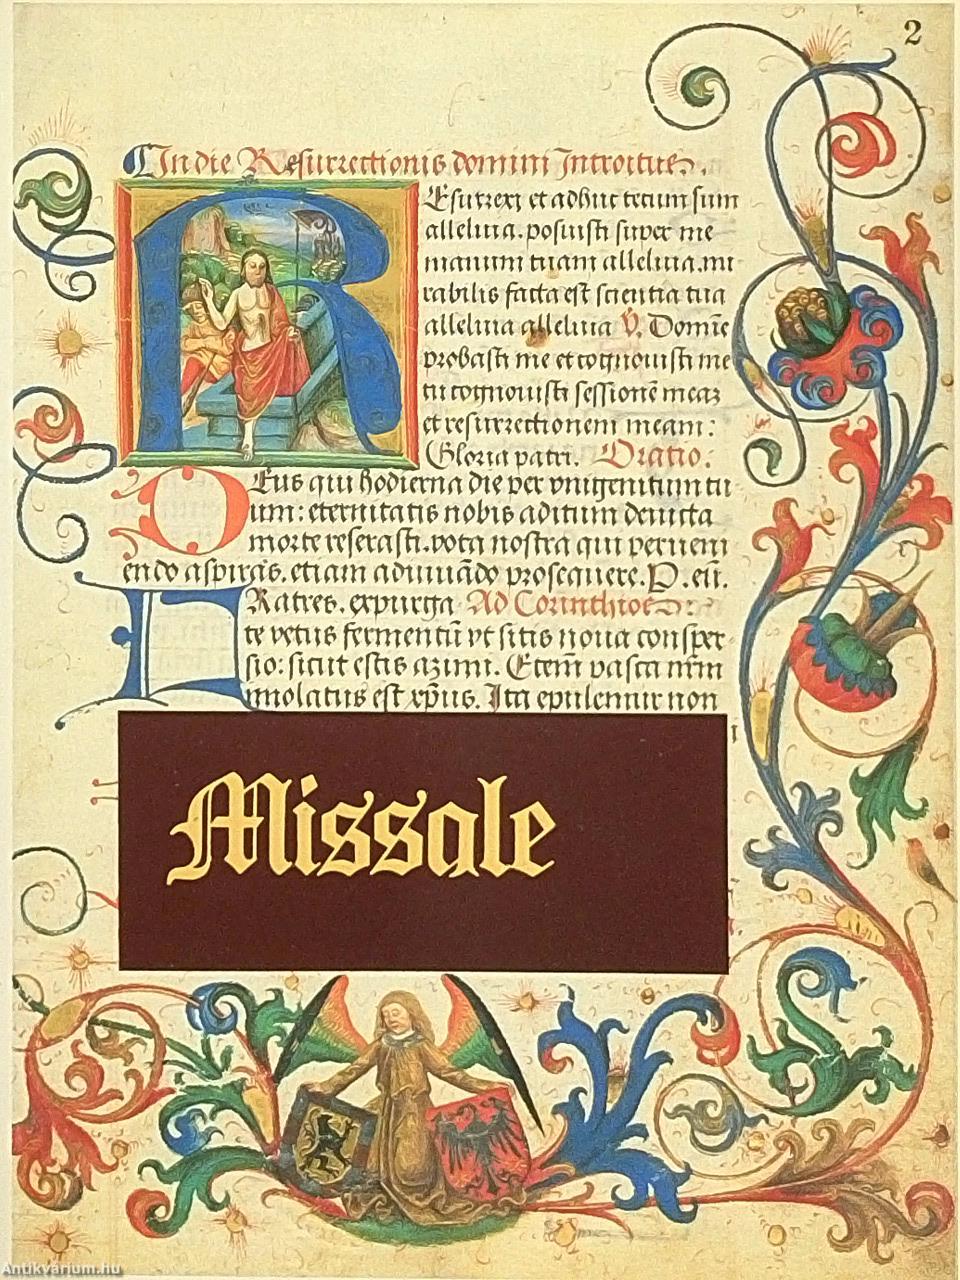 2
In die Resurrectionis domini Introitus.
REsurrexi et adhuc tecum sum
alleluia. posuisti super me
manum tuam alleluia. mi
rabilis facta est scientia tua
alleluia alleluia V̄. Domīe
probasti me et cognouisti me
tu cognouisti sessionē meaz
et resurrectionem meam:
Gloria patri. Oratio:
DEus qui hodierna die per vnigenitum tu
um: eternitatis nobis aditum deuicta
morte reserasti. vota nostra qui preueni
endo aspiras. etiam adiuuādo prosequere. P. eū.
FRatres. expurga Ad Corinthios:
te vetus fermentū vt sitis noua consper
sio: sicut estis azimi. Etem̄ pasca nr̄m
immolatus est xp̄us. Ita epulemur non
Missale
Antikvárium.hu